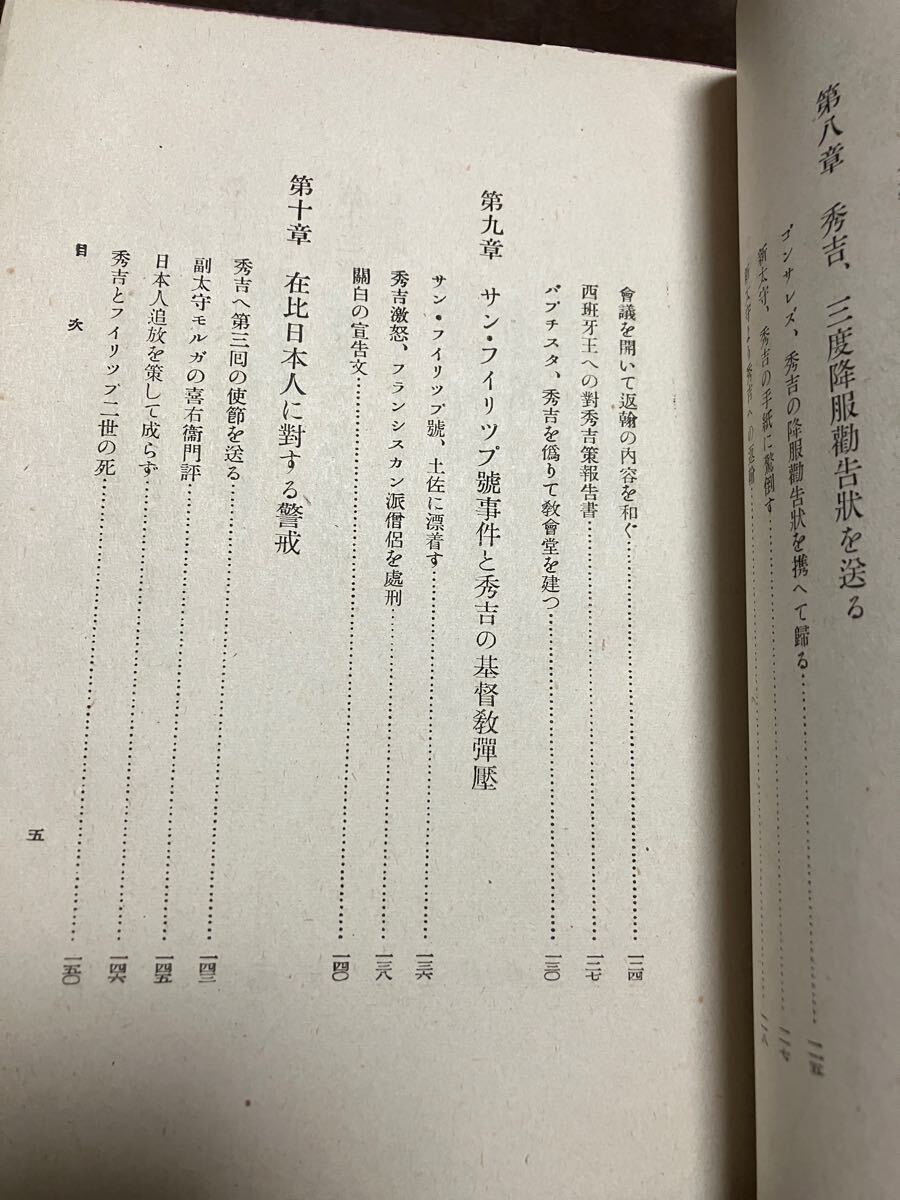 第八章　秀吉、三度降服勸告狀を送る
ゴンサレズ、秀吉の降服勸告狀を携へて歸る……一一五
新太守、秀吉の手紙に驚倒す……一一七
秀吉への返翰……一一八
會議を開いて返翰の內容を和ぐ……一二四
西班牙王への對秀吉策報告書……一二七
バプチスタ、秀吉を僞りて敎會堂を建つ……一三〇
第九章　サン・フイリツプ號事件と秀吉の基督敎彈壓
サン・フイリツプ號、土佐に漂着す……一三六
秀吉激怒、フランシスカン派僧侶を處刑……一三八
關白の宣告文……一四〇
第十章　在比日本人に對する警戒
秀吉へ第三回の使節を送る……一四三
副太守モルガの喜右衞門評……一四三
日本人追放を策して成らず……一四五
秀吉とフイリツプ二世の死……一四六
……一五〇
目次
五